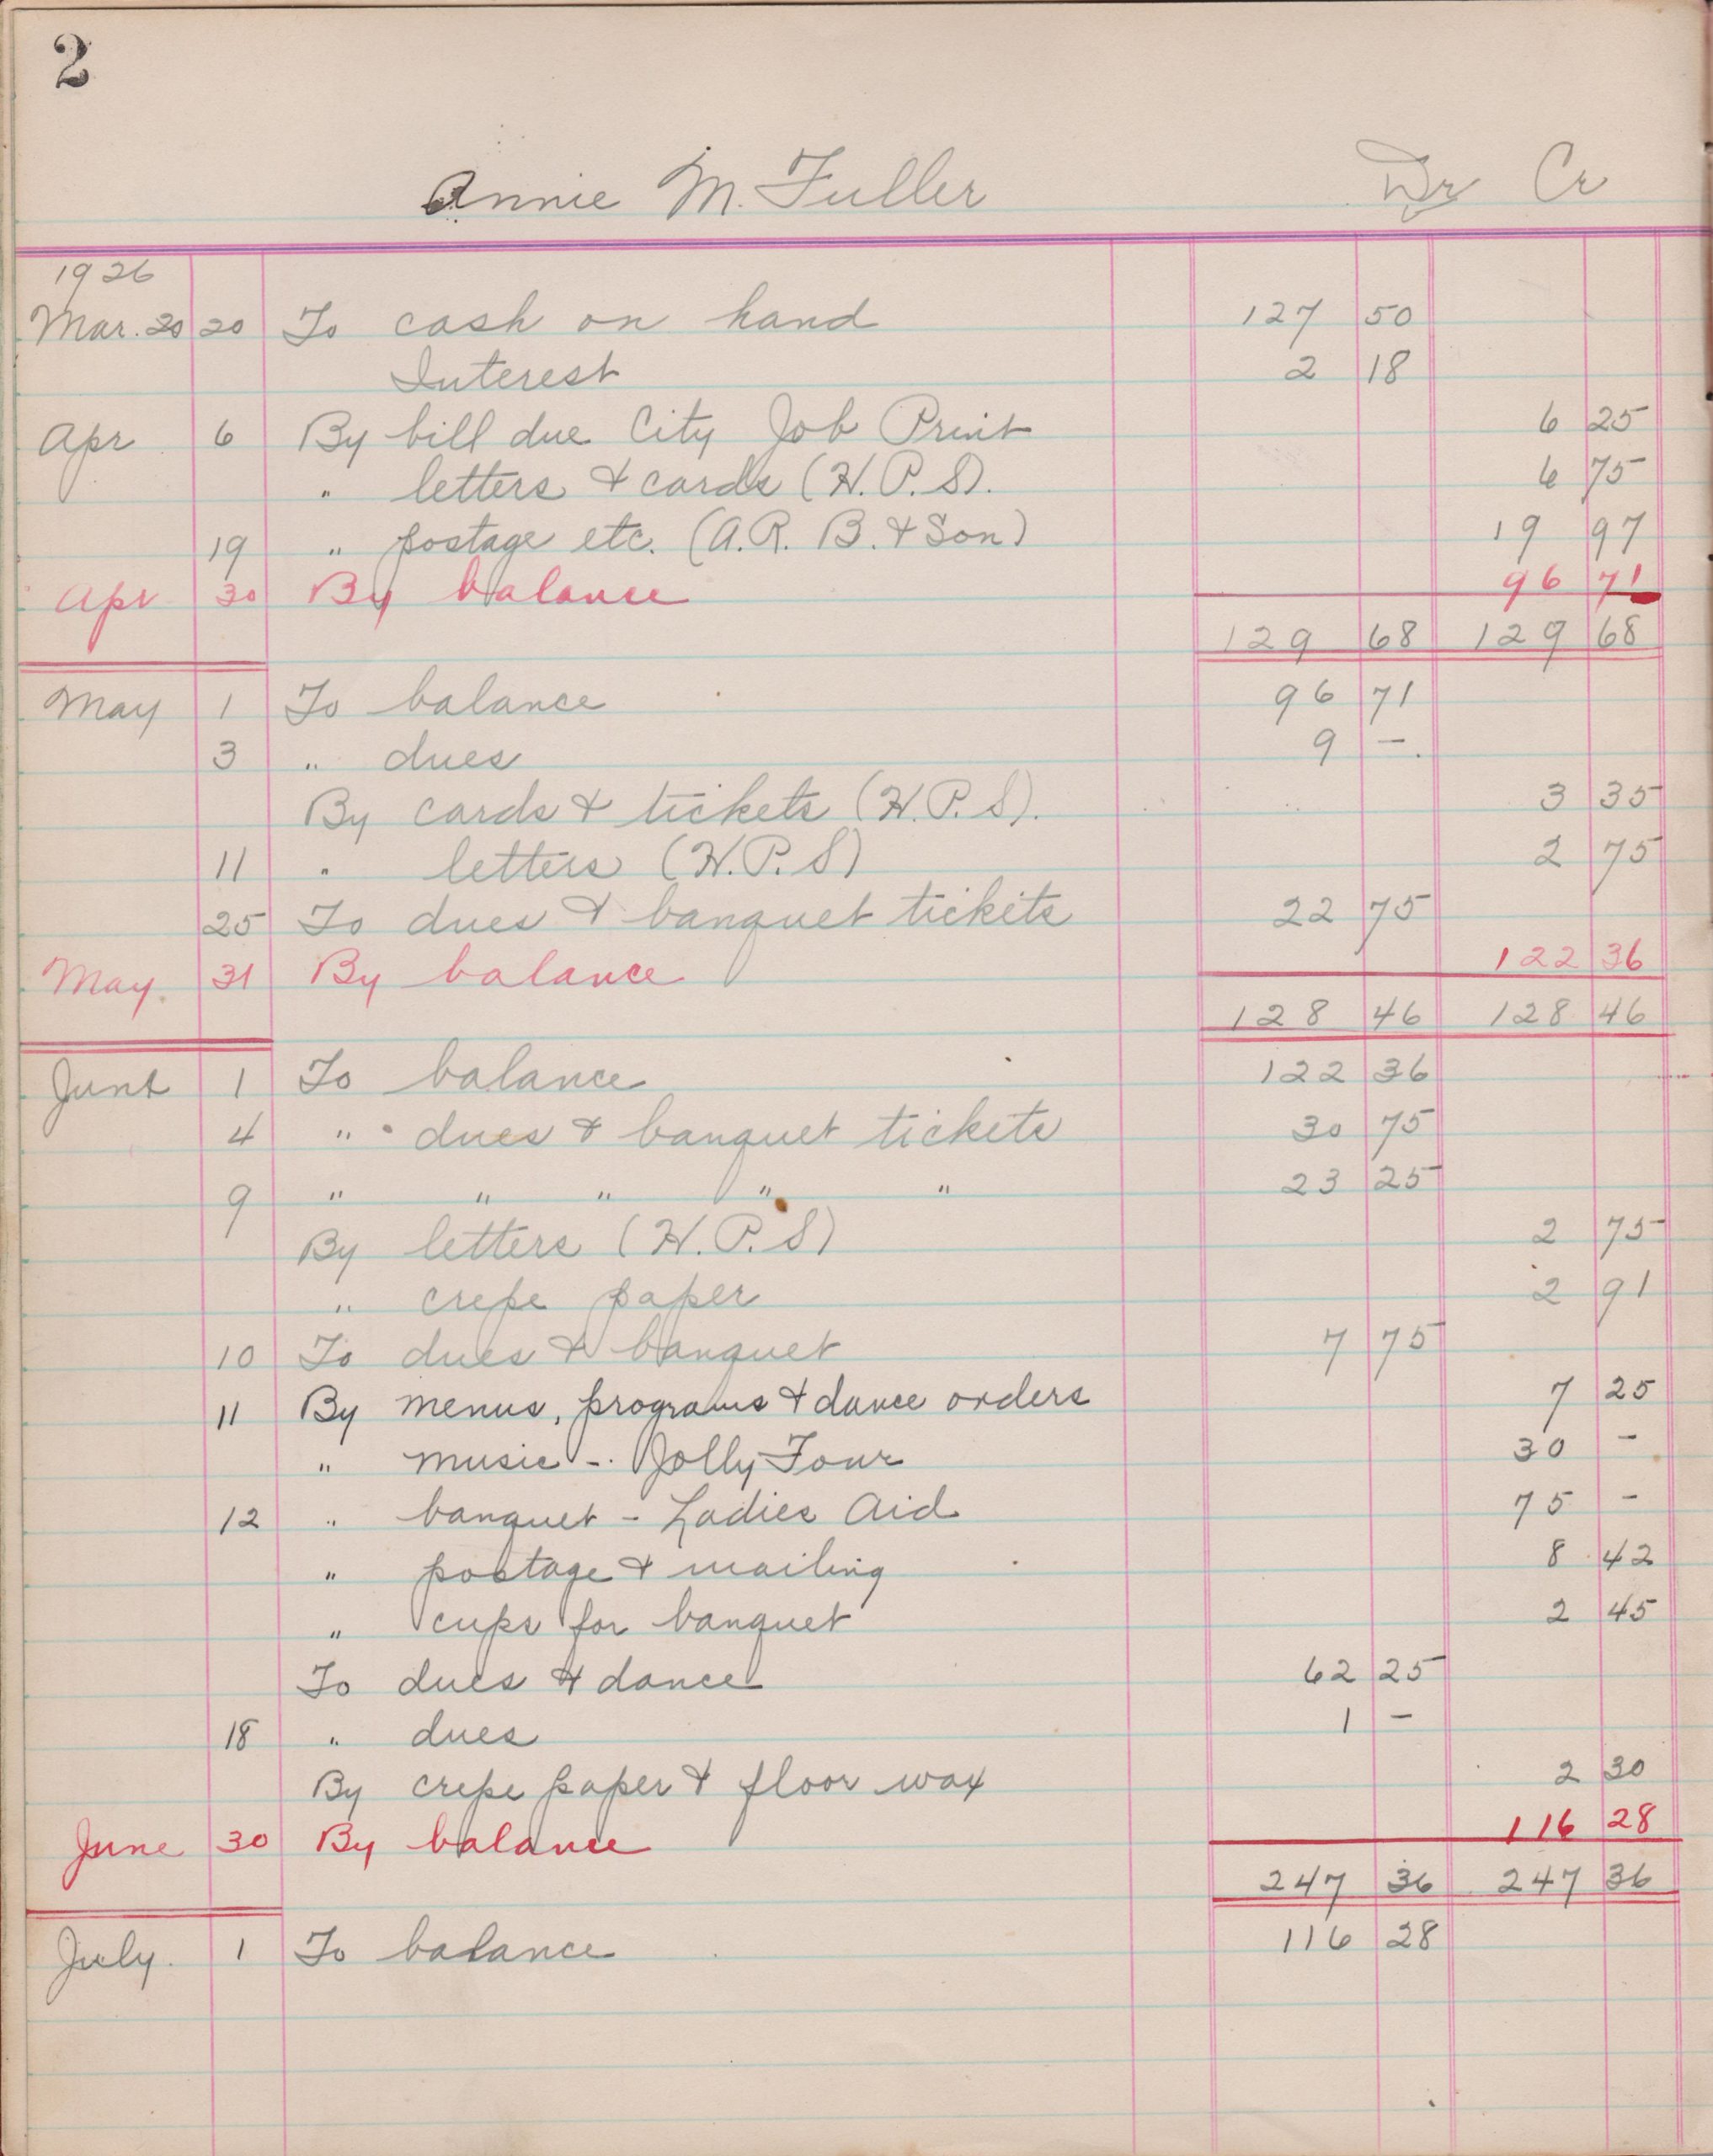 2
Annie M. Fuller Dr Cr
1926
Mar. 20 20 To cash on hand 127 50
Interest 2 18
Apr 6 By bill due City Job Print 6 25
" letters & cards (H.P.S). 6 75
19 " postage etc. (A.R. B. & Son) 19 97
Apr 30 By balance 96 71
129 68 129 68
May 1 To balance 96 71
3 " dues 9 –.
By cards & tickets (H.P.S). 3 35
11 " letters (H.P.S) 2 75
25 To dues & banquet tickets 22 75
May. 31 By balance 122 36
128 46 128 46
June 1 To balance 122 36
4 " dues & banquet tickets 30 75
9 " " " " " 23 25
By letters (H.P.S) 2 75
" crepe paper 2 91
10 To dues & banquet 7 75
11 By menus, programs & dance orders 7 25
" music -. Jolly Four 30 –
12 " banquet - Ladies Aid 75 –
" postage & mailing 8 42
" cups for banquet 2 45
To dues & dance 62 25
18 " dues 1 –
By crepe paper & floor wax 2 30
June 30 By balance 116 28
247 36 247 36
July. 1 To balance 116 28